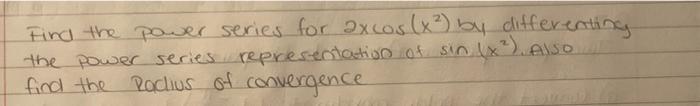 Find the power series for 2xcos(x²) by differenting
the power series representation of sin (x²). Also
find the Radius of convergence